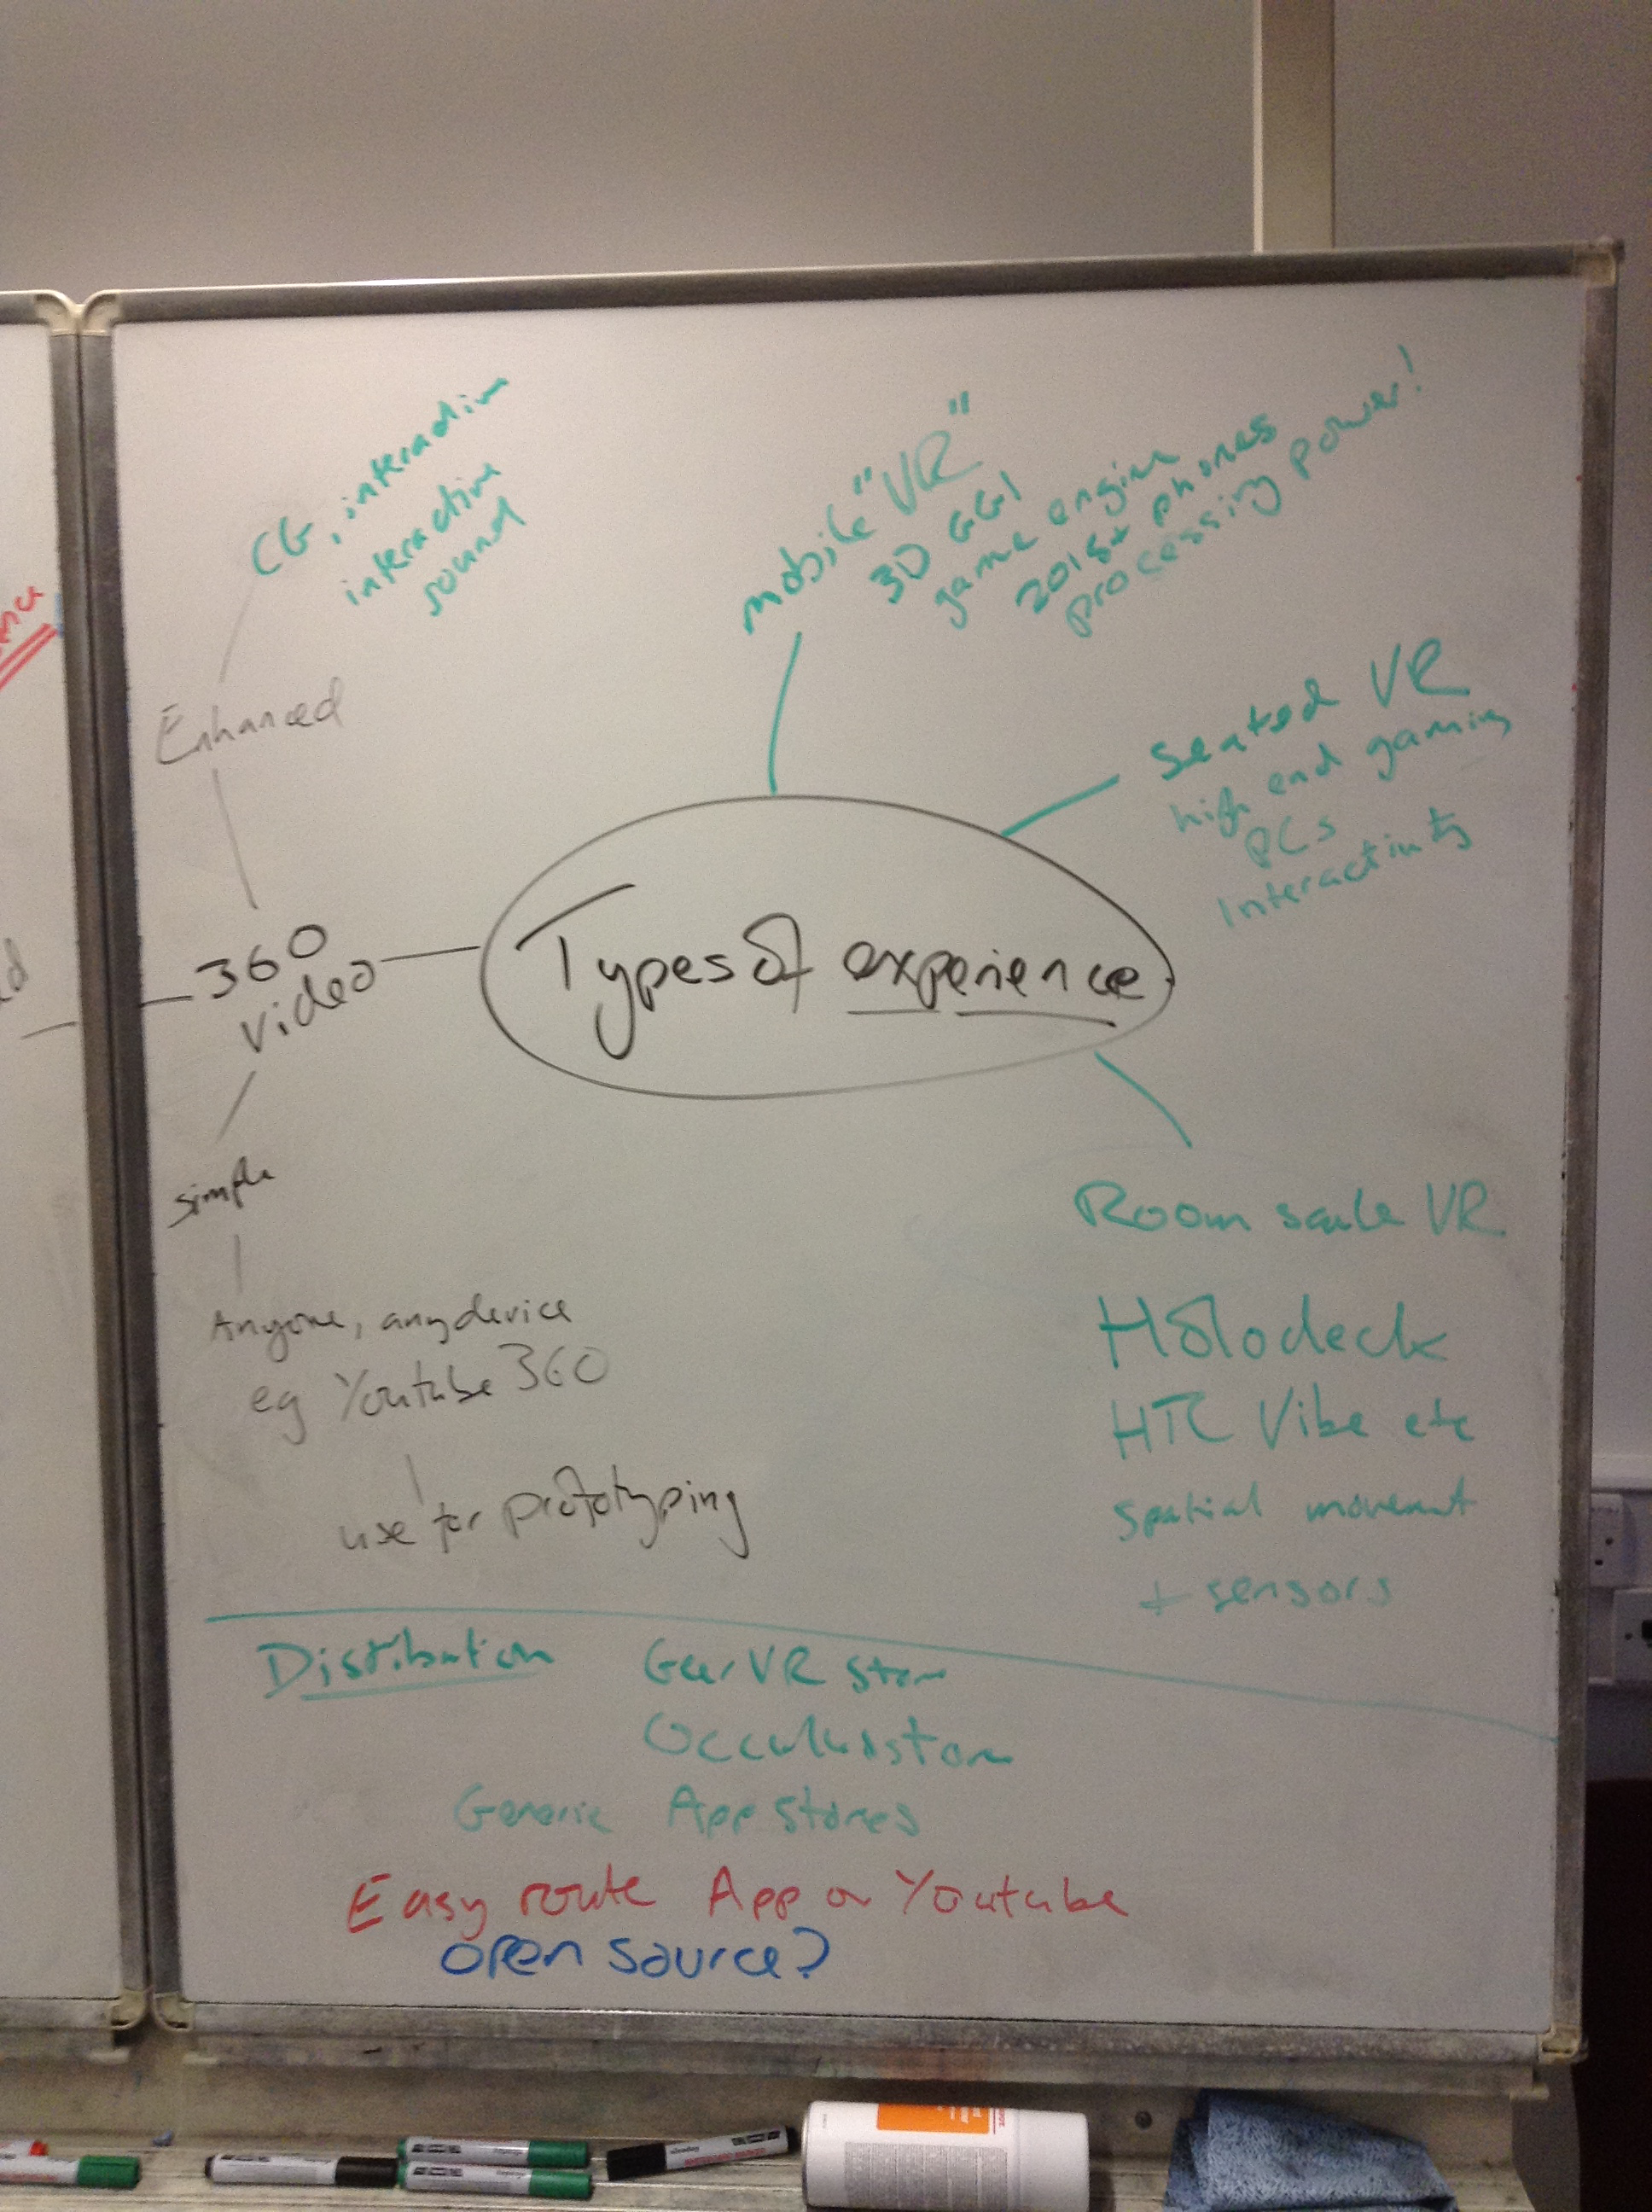 CG, interaction
interactive
sound
Enhanced
mobile "VR"
3D CGI
game engine
2015+ phones
processing power!
Seated VR
high end gaming
PCs
Interactivity
Types of experience
360
video
simple
Anyone, any device
eg Youtube 360
use for prototyping
Room scale VR
Holodeck
HTC Vibe etc
spatial movement
+ sensors
Distibution GearVR store
Occulus store
Generic App stores
Easy route App or Youtube
open source?